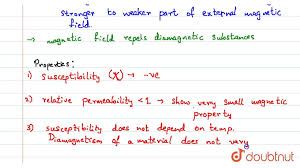 stronger to weaker part of external magnetic
field.
→ magnetic field repels diamagnetic substances
Properties:
1) Susceptibility (χ) → -ve
2) relative permeability < 1 → show very small magnetic
property
3) susceptibility does not depend on temp.
Diamagnetism of a material does not vary
doubtnut